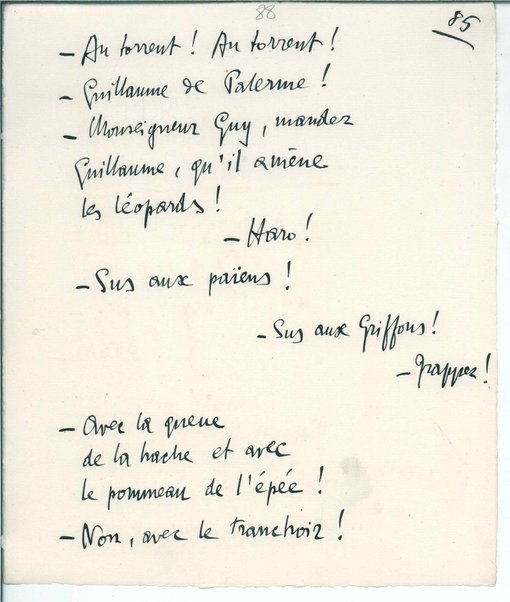 88
85
– Au torrent ! Au torrent !
– Guillaume de Palerme !
– Monseigneur Guy, mandez
Guillaume, qu'il amène
les léopards !
– Haro !
– Sus aux païens !
– Sus aux Griffons !
– Frappez !
– Avec la queue
de la hache et avec
le pommeau de l'épée !
– Non, avec le tranchoir !